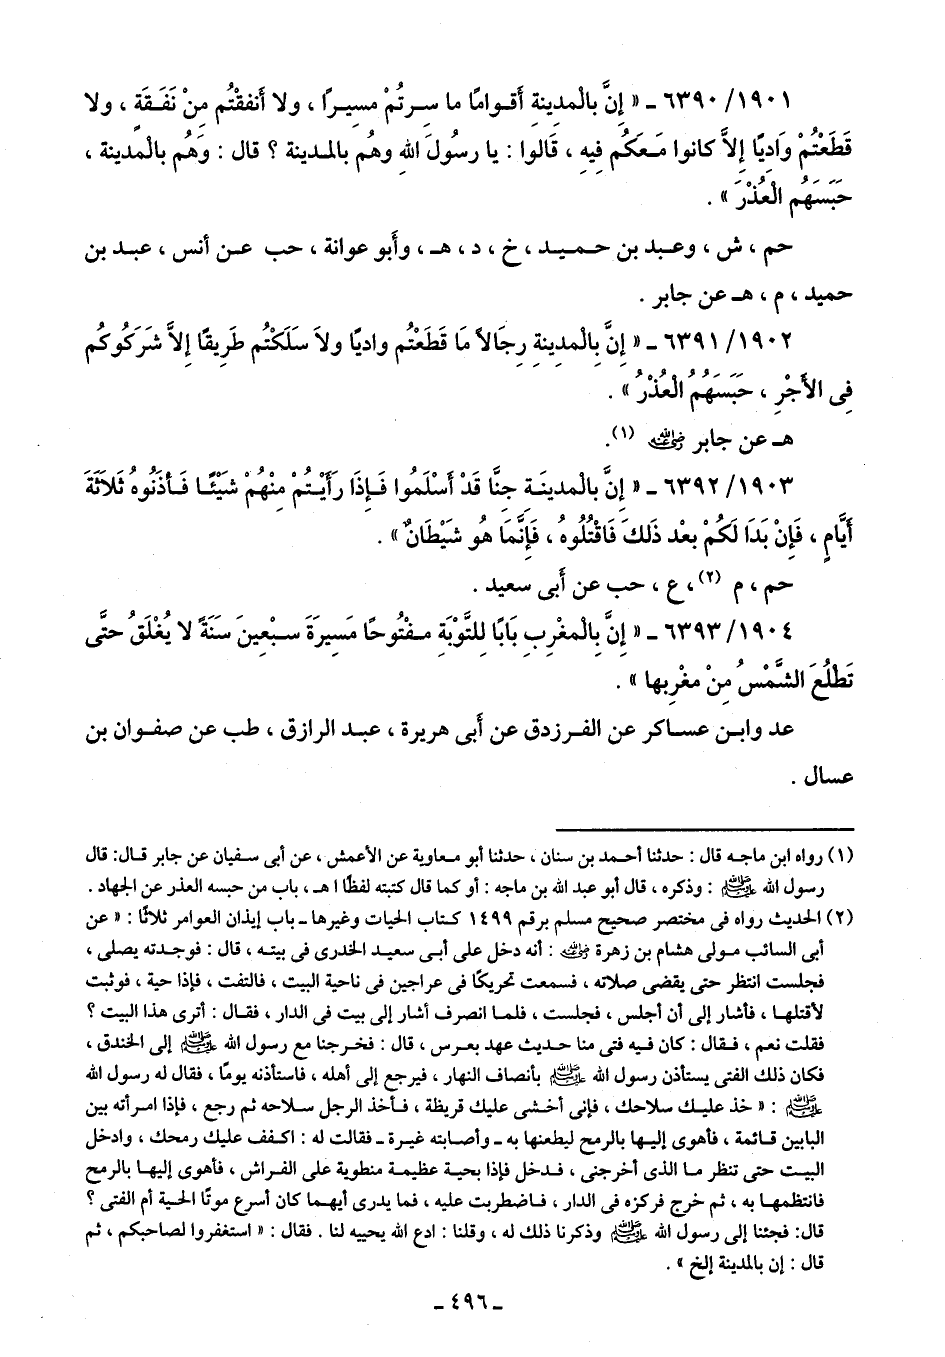 ١٩٠١/ ٦٣٩٠ ـ « إِنَّ بِالْمَدِينَةِ أَقْوامًا ما سِرتُمْ مسِيرًا ، ولا أَنفقْتُم مِنْ نَفَقَة ، ولا
قَطَعْتُمْ وَادِيًا إِلاَّ كانوا مَعَكُم فِيهِ ، قَالوا : يا رسُولَ الله وهُم بالمدينة ؟ قال : وَهُم بالْمَدِينة ،
حَبَسَهُم الْعُذْرَ » .
حم ، ش ، وعبد بن حميد ، خ ، د ، هـ ، وأبو عوانة ، حب عن أنس ، عبد بن
حميد ، م ، هـ عن جابر .
١٩٠٢/ ٦٣٩١ ـ « إِنَّ بِالْمدِينةِ رِجَالاً مَا قَطَعْتُم واديًا ولاَ سَلَكْتُم طَرِيقًا إِلاَّ شَرَكُوكُم
فِى الأَجْرِ ، حَبَسَهُمُ الْعُذْرُ » .
هـ عن جابر رضي الله عنه (١).
١٩٠٣/ ٦٣٩٢ ـ « إِنَّ بِالْمدِينَةِ جِنًّا قَدْ أَسْلَمُوا فَإِذَا رَأَيْتُمْ مِنْهُمْ شَيْئًا فَأذَنُوهُ ثَلاَثَةَ
أَيَّامٍ ، فَإِنْ بَدَا لَكُمْ بعْد ذَلكَ فَاقْتُلُوهُ ، فَإِنَّمَا هُو شَيْطَانٌ » .
حم ، م (٢) ، ع ، حب عن أبى سعيد .
١٩٠٤/ ٦٣٩٣ ـ « إِنَّ بِالْمغْرِبِ بَابًا لِلتَّوْبَة مفْتُوحًا مَسِيرَةَ سبْعِينَ سَنَةً لا يُغْلَقُ حتَّى
تَطْلُعَ الشَّمْسُ مِنْ مغْرِبِها » .
عد وابن عساكر عن الفرزدق عن أبى هريرة ، عبد الرازق ، طب عن صفوان بن
عسال .
(١) رواه ابن ماجه قال : حدثنا أحمد بن سنان ، حدثنا أبو معاوية عن الأعمش ، عن أبى سفيان عن جابر قال: قال
رسول الله ﷺ : وذكره ، قال أبو عبد الله بن ماجه : أو كما قال كتبته لفظًا اهـ ، باب من حبسه العذر عن الجهاد .
(٢) الحديث رواه فى مختصر صحيح مسلم برقم ١٤٩٩ كتاب الحيات وغيرها ـ باب إيذان العوامر ثلاثًا : « عن
أبى السائب مولى هشام بن زهرة رضي الله عنه : أنه دخل على أبى سعيد الخدرى فى بيته ، قال : فوجدته يصلى ،
فجلست انتظر حتى يقضى صلاته ، فسمعت تحريكًا فى عراجين فى ناحية البيت ، فالتفت ، فإذا حية ، فوثبت
لأقتلها ، فأشار إلى أن أجلس ، فجلست ، فلما انصرف أشار إلى بيت فى الدار ، فقال : أترى هذا البيت ؟
فقلت نعم ، فقال : كان فيه فتى منا حديث عهد بعرس ، قال : فخرجنا مع رسول الله ﷺ إلى الخندق ،
فكان ذلك الفتى يستأذن رسول الله ﷺ بأنصاف النهار ، فيرجع إلى أهله ، فاستأذنه يومًا ، فقال له رسول الله
ﷺ : « خذ عليك سلاحك ، فإنى أخشى عليك قريظة ، فأخذ الرجل سلاحه ثم رجع ، فإذا امرأته بين
البابين قائمة ، فأهوى إليها بالرمح ليطعنها به ـ وأصابته غيرة ـ فقالت له : اكفف عليك رمحك ، وادخل
البيت حتى تنظر ما الذى أخرجنى ، فدخل فإذا بحية عظيمة منطوية على الفراش ، فأهوى إليها بالرمح
فانتظمها به ، ثم خرج فركزه فى الدار ، فاضطربت عليه ، فما يدرى أيهما كان أسرع موتًا الحية أم الفتى ؟
قال: فجئنا إلى رسول الله ﷺ وذكرنا ذلك له ، وقلنا : ادع الله يحييه لنا . فقال : « استغفروا لصاحبكم ، ثم
قال : إن بالمدينة إلخ » .
ـ ٤٩٦ ـ